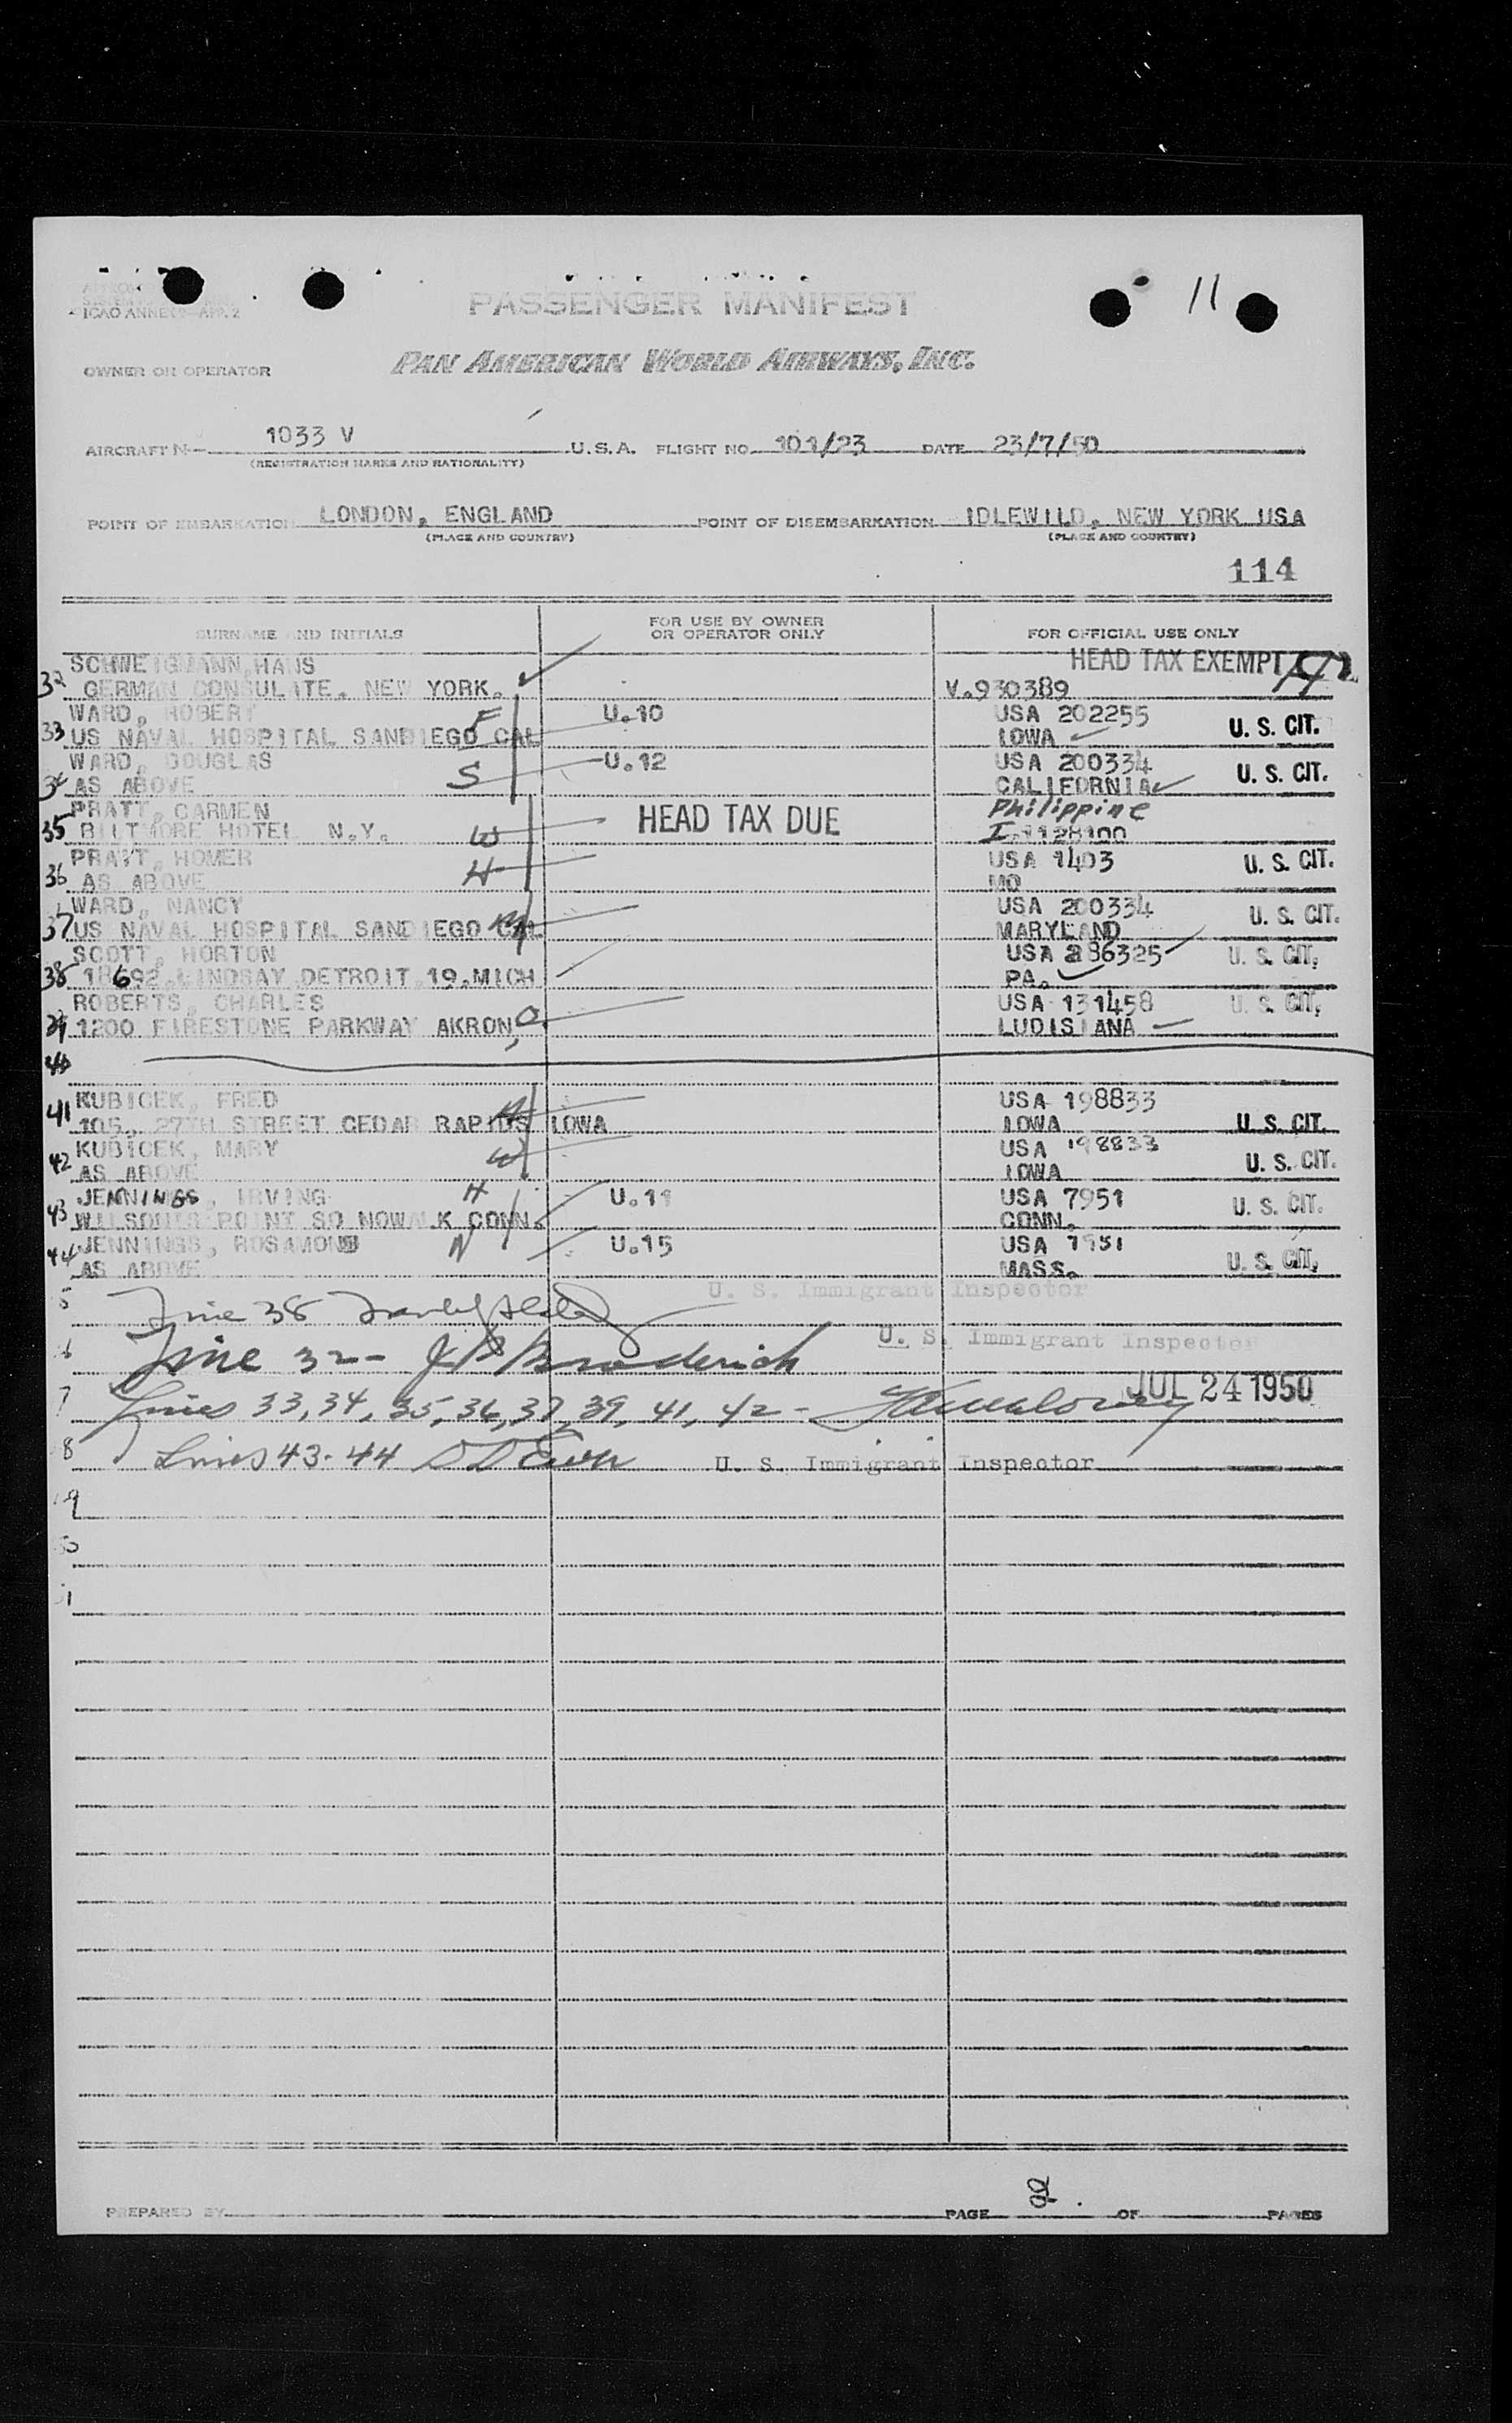 11
ICAO ANNEX 9-APP. 2
PASSENGER MANIFEST
OWNER OR OPERATOR PAN AMERICAN WORLD AIRWAYS, INC.
AIRCRAFT N- 1033 V U.S.A. FLIGHT NO. 101/23 DATE 23/7/50
(REGISTRATION MARKS AND NATIONALITY)
POINT OF EMBARKATION LONDON, ENGLAND POINT OF DISEMBARKATION IDLEWILD, NEW YORK USA
(PLACE AND COUNTRY) (PLACE AND COUNTRY)
114
SURNAME AND INITIALS FOR USE BY OWNER OR OPERATOR ONLY FOR OFFICIAL USE ONLY
SCHWEIGMANN, HANS HEAD TAX EXEMPT
32 GERMAN CONSULATE, NEW YORK. V.930389
WARD, ROBERT F U.10 USA 202255
33 US NAVAL HOSPITAL SANDIEGO CAL IOWA U. S. CIT.
WARD, DOUGLAS S U.12 USA 200334
34 AS ABOVE CALIFORNIA U. S. CIT.
PRATT, CARMEN HEAD TAX DUE Philippine
35 BILTMORE HOTEL N.Y. W I-1128100
PRATT, HOMER USA 1403 U. S. CIT.
36 AS ABOVE H MO
WARD, NANCY USA 200334
37 US NAVAL HOSPITAL SANDIEGO CAL MARYLAND U. S. CIT.
SCOTT, HORTON USA 286325 U. S. CIT.
38 18692 LINDSAY DETROIT 19, MICH PA.
ROBERTS, CHARLES USA 131458 U. S. CIT.
39 1200 FIRESTONE PARKWAY AKRON, O. LUDISIANA
40
KUBICEK, FRED USA 198833
41 105, 27TH STREET CEDAR RAPIDS IOWA IOWA U. S. CIT.
KUBICEK, MARY W USA 198833
42 AS ABOVE IOWA U. S. CIT.
JENNINGS, IRVING H U.11 USA 7951
43 WILSONS POINT SO NOWALK CONN. CONN. U. S. CIT.
JENNINGS, ROSAMOND U.15 USA 7951
44 AS ABOVE MASS. U. S. CIT.
U. S. Immigrant Inspector
5 Line 38
U. S. Immigrant Inspector
6 Line 32 - J P Broderich
JUL 24 1950
7 Lines 33, 34, 35, 36, 37, 39, 41, 42 -
8 Lines 43-44 U. S. Immigrant Inspector
9
50
51
PREPARED BY PAGE OF PAGES